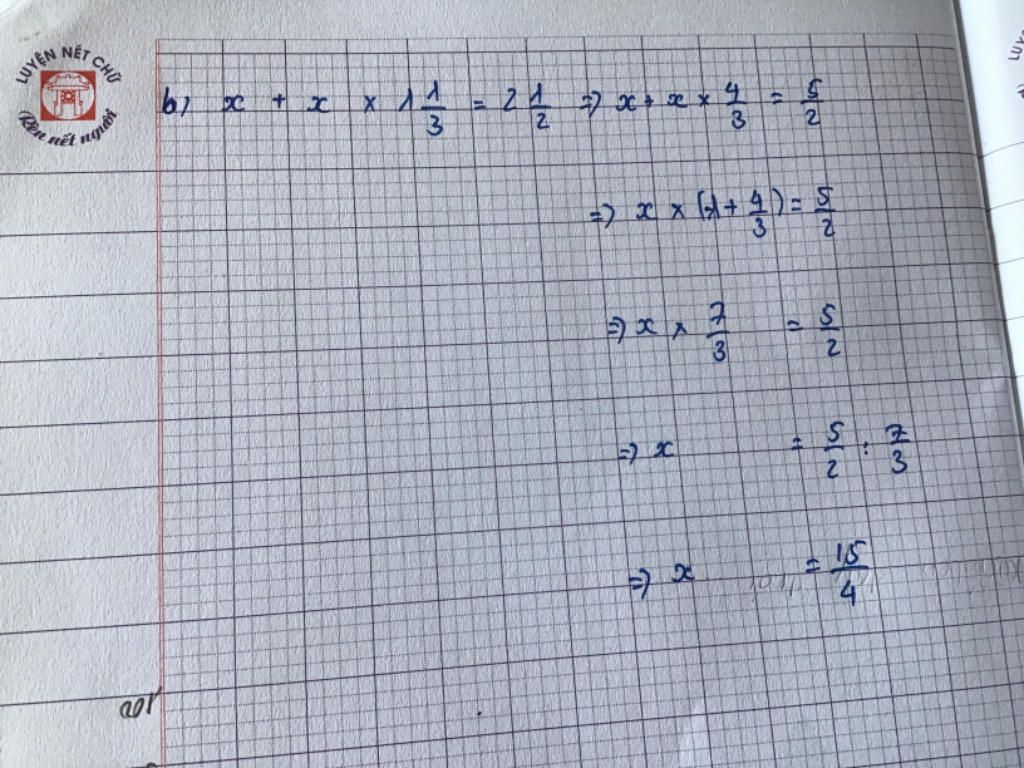 LUYỆN NÉT CHỮ
Rèn nết người
b) x + x × 1 1/3 = 2 1/2 => x + x × 4/3 = 5/2
=> x × (1 + 4/3) = 5/2
=> x × 7/3 = 5/2
=> x = 5/2 : 7/3
=> x = 15/4